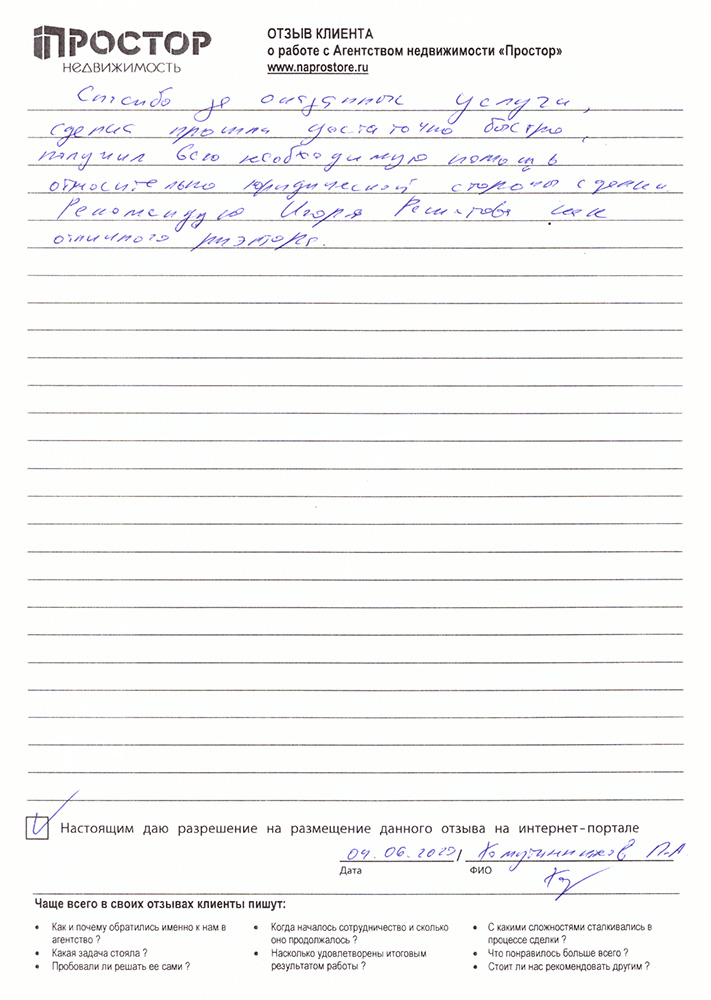 ПРОСТОР
НЕДВИЖИМОСТЬ
ОТЗЫВ КЛИЕНТА
о работе с Агентством недвижимости «Простор»
www.naprostore.ru
Спасибо за оказанные услуги,
сделка прошла достаточно быстро,
получил всю необходимую помощь
относительно юридической стороны сделки
Рекомендую Игоря как
отличного риэлтора.
Настоящим даю разрешение на размещение данного отзыва на интернет-портале
/ П.А
Дата
ФИО
Чаще всего в своих отзывах клиенты пишут:
• Как и почему обратились именно к нам в
агентство ?
• Какая задача стояла ?
• Пробовали ли решать ее сами ?
• Когда началось сотрудничество и сколько
оно продолжалось ?
• Насколько удовлетворены итоговым
результатом работы ?
• С какими сложностями сталкивались в
процессе сделки ?
• Что понравилось больше всего ?
• Стоит ли нас рекомендовать другим ?